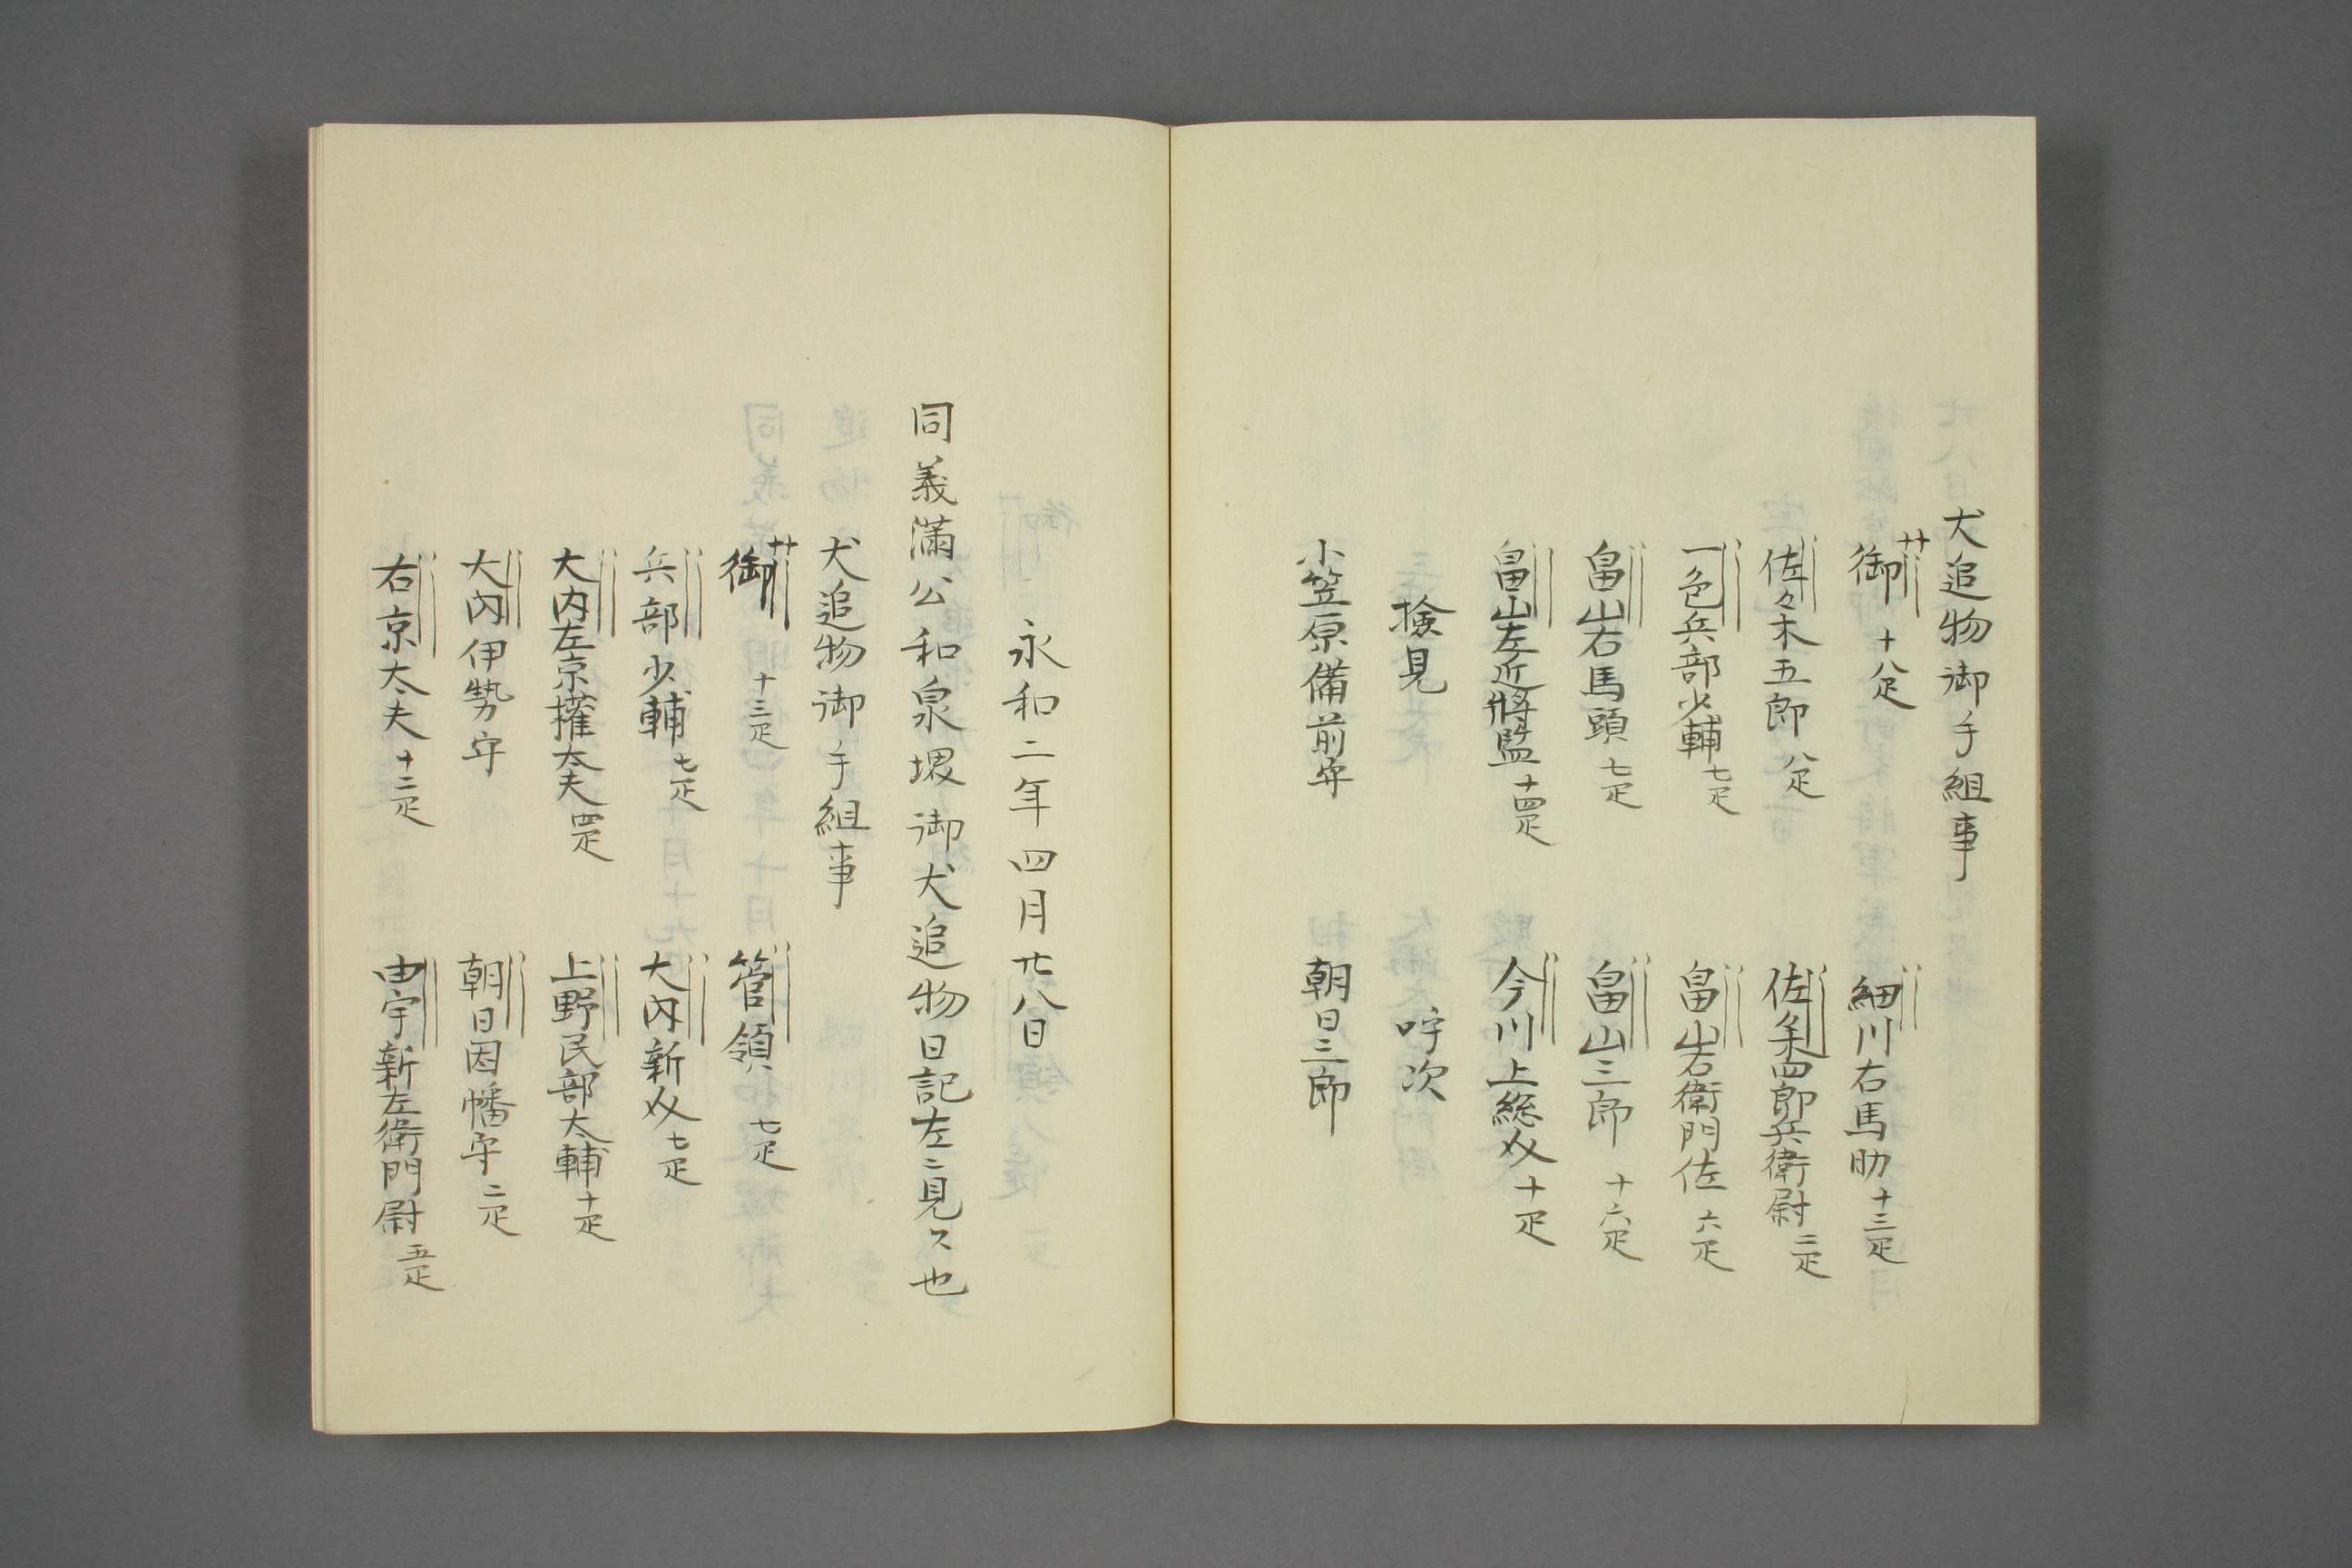 犬追物御手組事
御 十八疋
細川右馬助 十三疋
佐々木五郎 八疋
佐々木四郎兵衛尉 二疋
一色兵部少輔 七疋
畠山右衛門佐 六疋
畠山右馬頭 七疋
畠山三郎 十六疋
畠山左近将監 十四疋
今川上総介 十疋
検見
呼次
小笠原備前守
朝日三郎
永和二年四月廿八日
同義満公和泉堺御犬追物日記左ニ見ヘ也
犬追物御手組事
御 十三疋
管領 七疋
兵部少輔 七疋
大内新介 七疋
大内左京権大夫 四疋
上野民部大輔 十疋
大内伊勢守
朝日因幡守 二疋
右京大夫 十二疋
由宇新左衛門尉 五疋